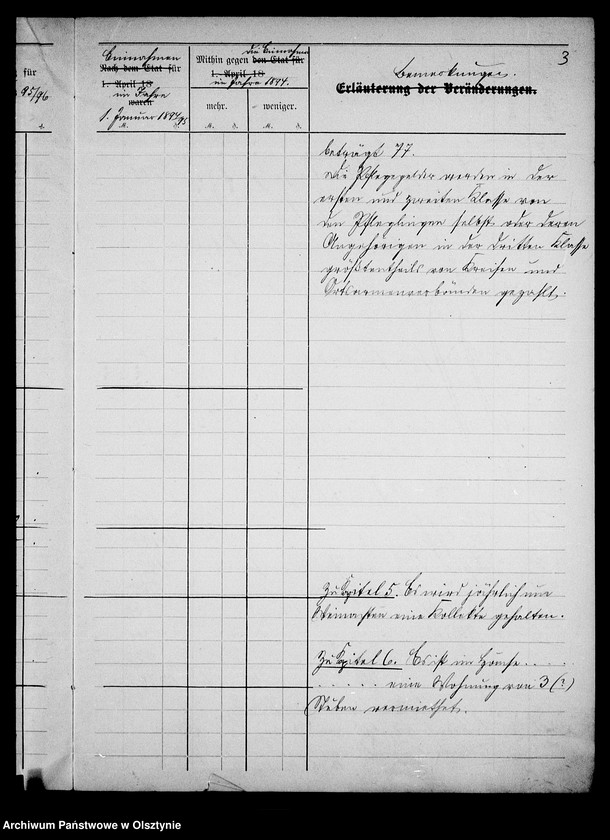 3
für
95/96
Einnahmen
Nach dem Etat für
1. April 18
im Jahre
waren
1. Januar 1894/95
M. ₰.
die Einnahmen
Mithin gegen den Etat für
1. April 18
im Jahre 1894.
mehr. weniger.
M. ₰. M. ₰.
Bemerkungen.
Erläuterung der Veränderungen.
beträgt 77.
Die Pflegegelder werden in der
ersten und zweiten Klasse von
den Pfleglingen selbst oder deren
Angehörigen in der dritten Klasse
größtentheils von Kreisen und
Ortsarmenverbänden gezahlt.
Zu Kapitel 5. Es wird jährlich um
Weinachten eine Kollekte gehalten.
Zu Kapitel 6. Es ist im Hause . . . .
. . . . . . eine Wohnung von 3 (?)
Stuben vermiethet.
Archiwum Państwowe w Olsztynie